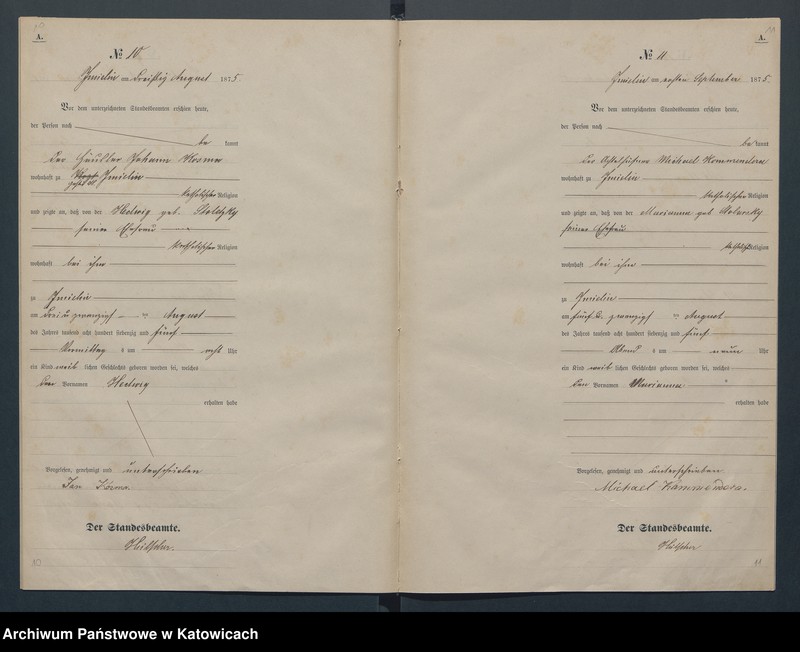 10
A.
№ 10
Imielin am dreißig August 1875
Vor dem unterzeichneten Standesbeamten erschien heute,
der Person nach
be kannt
Der Händler Johann Kosma
wohnhaft zu Imielin
katholischer Religion
und zeigte an, daß von der Hedwig geb. Stolecky
seiner Ehefrau
katholischer Religion
wohnhaft bei ihm
zu Imielin
am drei u zwanzigst en August
des Jahres tausend acht hundert siebenzig und fünf
Vormittag s um acht Uhr
ein Kind weib lichen Geschlechts geboren worden sei, welches
den Vornamen Hedwig
erhalten habe
Vorgelesen, genehmigt und unterschrieben
Jan
Der Standesbeamte.
10
11
A.
№ 11
Imielin am ersten September 1875.
Vor dem unterzeichneten Standesbeamten erschien heute,
der Person nach
be kannt
Der Michael Kommendera
wohnhaft zu Imielin
katholischer Religion
und zeigte an, daß von der Marianna geb.
seiner Ehefrau
katholischer Religion
wohnhaft bei ihm
zu Imielin
am fünf u. zwanzigst en August
des Jahres tausend acht hundert siebenzig und fünf
Abend s um neun Uhr
ein Kind weib lichen Geschlechts geboren worden sei, welches
den Vornamen Marianna
erhalten habe
Vorgelesen, genehmigt und unterschrieben
Michael Kammendera.
Der Standesbeamte.
11
Archiwum Państwowe w Katowicach